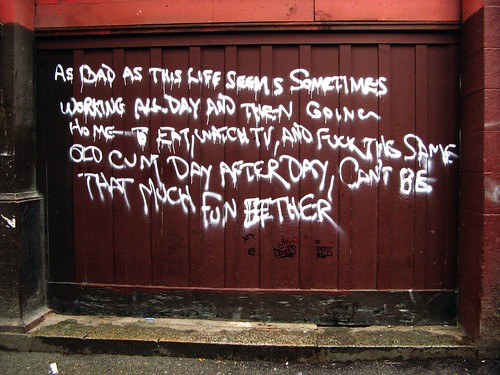 AS BAD AS THIS LIFE SEEMS SOMETIMES
WORKING ALL DAY AND THEN GOING
HOME TO EAT, WATCH TV, AND FUCK THE SAME
OLD CUM DAY AFTER DAY, CAN'T BE
THAT MUCH FUN EETHER